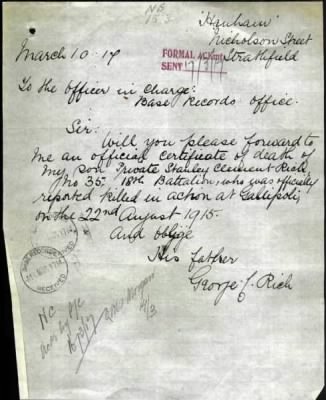 NB
15.3
"Hanham"
Nicholson Street
Strathfield
March 10-17
FORMAL ACKmt
SENT 17/3/17
To the Officer in Charge:
Base Records Office.
Sir:
Will you please forward to
me an official certificate of death of
my son Private Stanley Clement Rich,
No 35 18th Battalion, who was officially
reported killed in action at Gallipoli,
on the 22nd August 1915.
And oblige
His father
George J. Rich
RECEIVED
NC